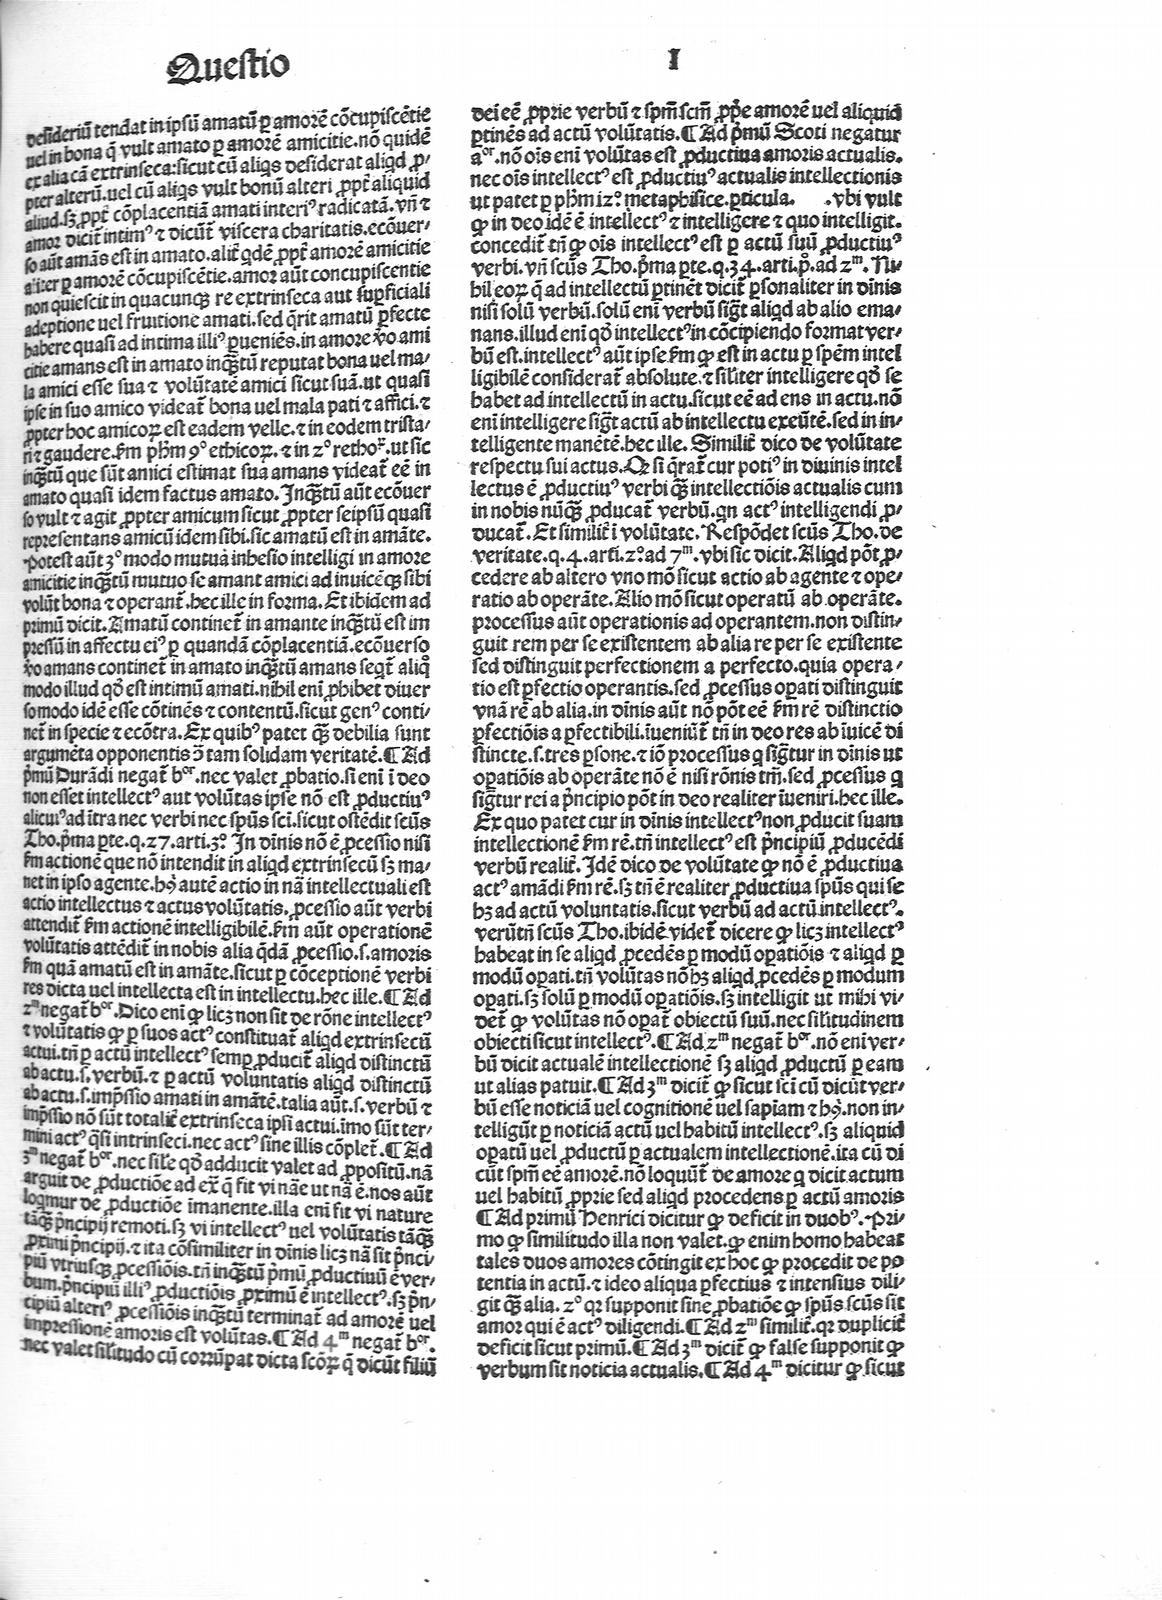 Questio
I
desideriū tendat in ipsū amatū ꝑ amorē cōcupiscētie
uel in bona q̄ vult amato ꝑ amorē amicitie.nō quidē
ex alia cā extrinseca:sicut cū aliqs desiderat aliqd ꝓ/
pter alterū.uel cū aliqs vult bonū alteri ꝓpt̄ aliquid
aliud.sꝫ ꝓpt̄ cōplacentiā amati interiꝰ radicatā.vn̄ ⁊
amor dicit̄ intimꝰ ⁊ dicūt̄ viscera charitatis.ecōuer/
so aūt amās est in amato.alit̄ qdē ꝓpt̄ amorē amicitie
aliter ꝑ amorē cōcupiscētie.amor aūt concupiscentie
non quiescit in quacunqꝫ re extrinseca aut suꝑficiali
adeptione uel fruitione amati.sed q̄rit amatū ꝑfecte
habere quasi ad intima illiꝰ ꝑueniēs.in amore ꝟo ami
citie amans est in amato inqꝫtū reputat bona uel ma/
la amici esse sua ⁊ volūtatē amici sicut suā.ut quasi
ipse in suo amico videat̄ bona uel mala pati ⁊ affici.⁊
ꝓpter hoc amicoꝝ est eadem velle.⁊ in eodem trista/
ri ⁊ gaudere.ẜm pħm 9º ethicoꝝ.⁊ in 2º rethoꝝ.ut sic
inqꝫtū que sūt amici estimat sua amans videat̄ eē in
amato quasi idem factus amato.Inqꝫtū aūt ecōuer
so vult ⁊ agit ꝓpter amicum sicut ꝓpter seipsū quasi
representans amicū idem sibi.sic amatū est in amāte.
Potest aūt 3º modo mutua inhesio intelligi in amore
amicitie inqꝫtū mutuo se amant amici ad inuicēqꝫ sibi
volūt bona ⁊ operant̄.hec ille in forma.Et ibidem ad
primū dicit.Amatū continet̄ in amante inqꝫtū est im
pressū in affectu eiꝰ ꝑ quandā cōplacentiā.ecōuerso
ꝟo amans continet̄ in amato inqꝫtū amans seqt̄ aliqº
modo illud qd̄ est intimū amati.nihil eni ꝓhibet diuer
so modo idē esse cōtinēs ⁊ contentū.sicut genꝰ conti/
net̄ in specie ⁊ ecōtra.Ex quibꝰ patet qꝫ debilia sunt
argumēta opponentis ↄ̄ tam solidam veritatē.¶Ad
p̄mū Durādi negat̄ bᵒʳ.nec valet ꝓbatio.si eni i deo
non esset intellectꝰ aut volūtas ipse nō est ꝓductiuꝰ
alicuiꝰ ad itra nec verbi nec spūs sci.sicut ostēdit scūs
Tho.p̄ma ꝑte.q.27.arti.3º. In diuis nō ē ꝓcessio nisi
ẜm actionē que nō intendit in aliqd extrinsecū sꝫ ma/
net in ipso agente.hꝰ autē actio in nā intellectuali est
actio intellectus ⁊ actus volūtatis.ꝓcessio aūt verbi
attendit̄ ẜm actionē intelligibilē.ẜm aūt operationē
volūtatis attēdit̄ in nobis alia qdā ꝓcessio.s.amoris
ẜm quā amatū est in amāte.sicut ꝑ cōceptionē verbi
res dicta uel intellecta est in intellectu.hec ille.¶Ad
2ᵐ negat̄ bᵒʳ.Dico eni ꝙ licꝫ non sit de rōne intellectꝰ
⁊ volūtatis ꝙ ꝑ suos actꝰ constituat̄ aliqd extrinsecū
actui.tn̄ ꝑ actū intellectꝰ semꝑ ꝓducit̄ aliqd distinctū
ab actu.s.verbū.⁊ ꝑ actū voluntatis aliqd distinctū
ab actu.s.imp̄ssio amati in amātē.talia aūt.s.verbū ⁊
imp̄ssio nō sūt totalit̄ extrinseca ipsi actui.imo sūt ter/
mini actꝰ q̄si intrinseci.nec actꝰ sine illis cōplet̄.¶Ad
3ᵐ negat̄ bᵒʳ.nec sile qd̄ adducit valet ad ꝓpositū.nā
arguit de ꝓductiōe ad ex̄ q̄ fit vi nāe ut nā ē.nos aūt
loqmur de ꝓductiōe imanente.illa eni fit vi nature
tāqꝫ p̄ncipij remoti.sꝫ vi intellectꝰ uel volūtatis tāqꝫ
ꝓximi p̄ncipij.⁊ ita cōsimiliter in diuis licꝫ nā sit p̄nci/
piū vtriusqꝫ ꝓcessiōis.tn̄ inqꝫtū p̄mū ꝓductiuū ē ver/
bum.p̄ncipiū illiꝰ ꝓductiōis ꝓximū ē intellectꝰ.sꝫ p̄n/
cipiū alteriꝰ ꝓcessiōis inqꝫtū terminat̄ ad amorē uel
impressionē amoris est volūtas.¶Ad 4ᵐ negat̄ bᵒʳ.
nec valet silitudo cū corrūpat dicta scōꝝ q̄ dicūt filiū
dei eē ꝓprie verbū ⁊ spm̄ scm̄ ꝓpe amorē uel aliquid
ꝑtinēs ad actū volūtatis.¶Ad p̄mū Scoti negatur
aᵒʳ.nō ois eni volūtas est ꝓductiua amoris actualis.
nec ois intellectꝰ est ꝓductiuꝰ actualis intellectionis
ut patet ꝑ pħm 12º metaphisice.ꝑticula. .vbi vult
ꝙ in deo idē ē intellectꝰ ⁊ intelligere ⁊ quo intelligit.
concedit̄ tn̄ ꝙ ois intellectꝰ est ꝑ actū suū ꝓductiuꝰ
verbi.vn̄ scūs Tho.p̄ma ꝑte.q.34.arti.pº.ad 2ᵐ. Ni/
hil eoꝝ q̄ ad intellectū ꝑtinēt dicit̄ ꝑsonaliter in diuis
nisi solū verbū.solū eni verbū sigt̄ aliqd ab alio ema/
nans.illud eni qd̄ intellectꝰ in cōcipiendo format ver/
bū est.intellectꝰ aūt ipse ẜm ꝙ est in actu ꝑ spēm intel
ligibilē considerat̄ absolute.⁊ siliter intelligere qd̄ se
habet ad intellectū in actu.sicut eē ad ens in actu.nō
eni intelligere sigt̄ actū ab intellectu exeūtē.sed in in/
telligente manētē.hec ille. Similit̄ dico de volūtate
respectu sui actus.Qꝫ si qrat̄ cur potiꝰ in diuinis intel
lectus ē ꝓductiuꝰ verbi qꝫ intellectiōis actualis cum
in nobis nūqꝫ ꝓducat̄ verbū.qn actꝰ intelligendi ꝓ/
ducat̄.Et similit̄ i volūtate. Respōdet scūs Tho.de
veritate.q.4.arti.2º.ad 7ᵐ.vbi sic dicit.Aliqd pōt ꝓ/
cedere ab altero vno mō sicut actio ab agente ⁊ ope/
ratio ab operāte.Alio mō sicut operatū ab operāte.
processus aūt operationis ad operantem.non distin/
guit rem per se existentem ab alia re per se existente
sed distinguit perfectionem a perfecto.quia opera/
tio est ꝑfectio operantis.sed ꝓcessus oꝑati distinguit
vnā rē ab alia.in diuis aūt nō pōt eē ẜm rē distinctio
ꝑfectiōis a ꝑfectibili.iueniūt̄ tn̄ in deo res ab iuicē di
stincte.s.tres ꝑsone.⁊ iō processus q sigt̄ur in diuis ut
opatiōis ab operāte nō ē nisi rōnis tm̄.sed ꝓcessus q
sigt̄ur rei a p̄ncipio pōt in deo realiter iueniri.hec ille.
Ex quo patet cur in diuis intellectꝰ non ꝓducit suam
intellectionē ẜm rē.tn̄ intellectꝰ est p̄ncipiū ꝓducēdi
verbū realit̄. Idē dico de volūtate ꝙ nō ē ꝓductiua
actꝰ amādi ẜm rē.sꝫ tn̄ ē realiter ꝓductiua spūs qui se
hꝫ ad actū voluntatis.sicut verbū ad actū intellectꝰ.
verūtn̄ scūs Tho.ibidē videt̄ dicere ꝙ licꝫ intellectꝰ
habeat in se aliqd ꝓcedēs ꝑ modū oꝑatiōis ⁊ aliqd ꝑ
modū oꝑati.tn̄ volūtas nō hꝫ aliqd ꝓcedēs ꝑ modum
oꝑati.sꝫ solū ꝑ modū oꝑatiōis.sꝫ intelligit ut mihi vi/
det̄ ꝙ volūtas nō oꝑat̄ obiectū suū.nec silitudinem
obiecti sicut intellectꝰ.¶Ad 2ᵐ negat̄ bᵒʳ.nō eni ver/
bū dicit actualē intellectionē sꝫ aliqd ꝓductū ꝑ eam
ut alias patuit.¶Ad 3ᵐ dicit̄ ꝙ sicut sci cū dicūt ver/
bū esse noticiā uel cognitionē uel sapiam ⁊ hꝰ.non in/
telligūt ꝑ noticiā actū uel habitū intellectꝰ.sꝫ aliquid
oꝑatū uel ꝓductū ꝑ actualem intellectionē.ita cū di
cūt spm̄ eē amorē.nō loquūt̄ de amore q dicit actum
uel habitū ꝓprie sed aliqd procedens ꝑ actū amoris
¶Ad primū Henrici dicitur ꝙ deficit in duobꝰ.Pri/
mo ꝙ similitudo illa non valet.ꝙ enim homo habeat
tales duos amores cōtingit ex hoc ꝙ procedit de po
tentia in actū.⁊ ideo aliqua ꝑfectius ⁊ intensius dili/
git qꝫ alia. 2º qꝛ supponit sine ꝓbatiōe ꝙ spūs scūs sit
amor qui ē actꝰ diligendi.¶Ad 2ᵐ similit̄.qꝛ duplicit̄
deficit sicut primū.¶Ad 3ᵐ dicit̄ ꝙ false supponit ꝙ
verbum sit noticia actualis.¶Ad 4ᵐ dicitur ꝙ sicut